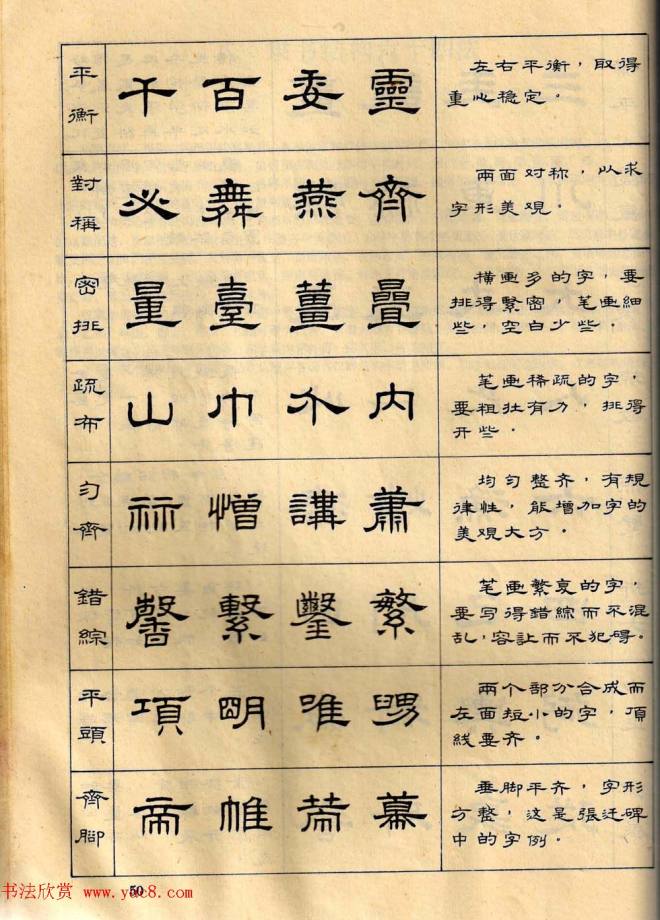 平衡
千百委靈
左右平衡，取得
重心稳定。
對稱
必舞燕齊
兩面对称，以求
字形美观。
密排
量臺薑疊
横画多的字，要
排得緊密，笔画細
些，空白少些。
疏布
山巾介内
笔画稀疏的字，
要粗壮有力，排得
开些。
匀齊
憎講蕭
均匀整齐，有規
律性，能增加字的
美观大方。
錯綜
馨繫鑿繁
笔画繁复的字，
要写得錯綜而不混
乱，容讓而不犯碍。
平頭
項明唯
兩个部分合成而
左面短小的字，頂
线要齐。
齊腳
帝帷幕
垂脚平齐，字形
方整，这是張迁碑
中的字例。
50
书法欣赏 www.yac8.com